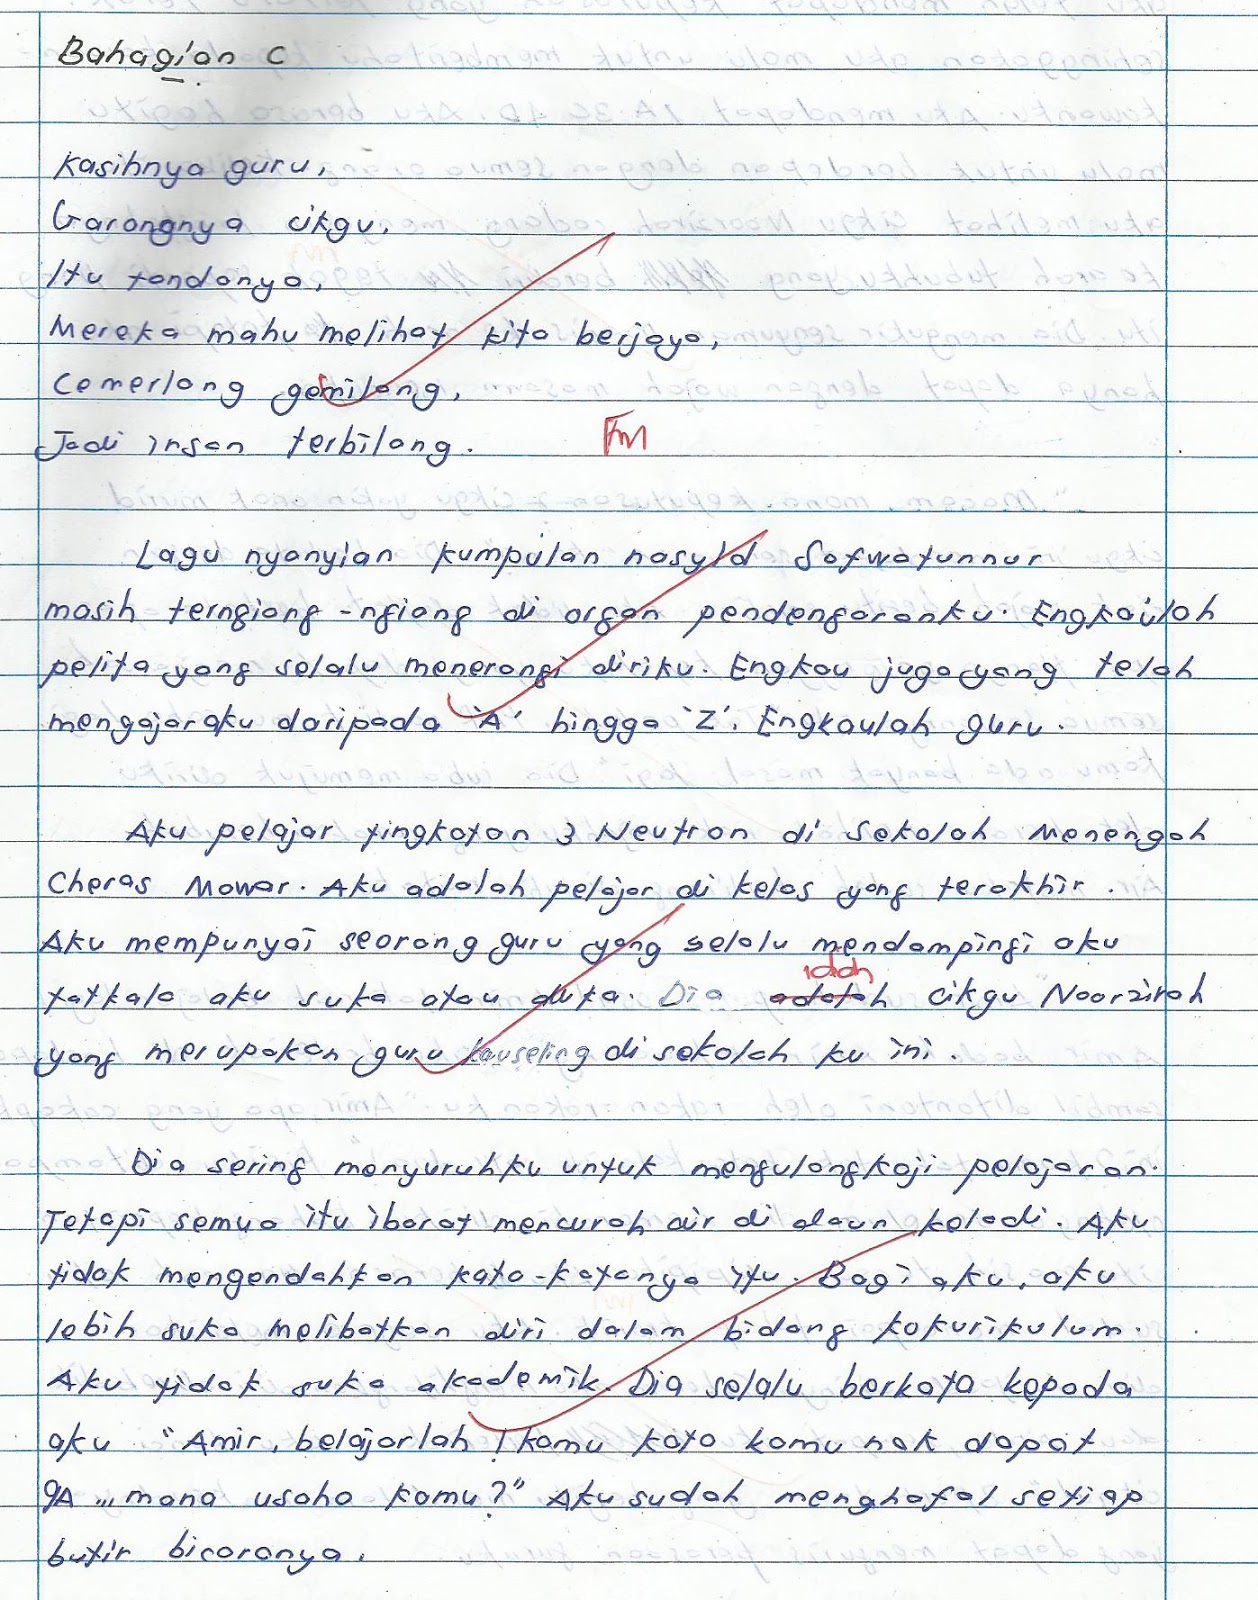 Bahagian C
Kasihnya guru,
Garangnya cikgu,
Itu tandanya,
Mereka mahu melihat kita berjaya,
Cemerlang gemilang,
Jadi insan terbilang.
FM
Lagu nyanyian kumpulan nasyid Sofwatunnur
masih terngiang-ngiang di organ pendengaranku. Engkaulah
pelita yang selalu menerangi diriku. Engkau juga yang telah
mengajar aku daripada 'A' hingga 'Z'. Engkaulah guru.
Aku pelajar tingkatan 3 Neutron di Sekolah Menengah
Cheras Mawar. Aku adalah pelajar di kelas yang terakhir.
Aku mempunyai seorang guru yang selalu mendampingi aku
ialah
tatkala aku suka atau duka. Dia adalah cikgu Noorzirah
yang merupakan guru kauseling di sekolah ku ini.
Dia sering menyuruhku untuk mengulangkaji pelajaran.
Tetapi semua itu ibarat mencurah air di daun keladi. Aku
tidak mengendahkan kata-katanya itu. Bagi aku, aku
lebih suka melibatkan diri dalam bidang kokurikulum.
Aku tidak suka akademik. Dia selalu berkata kepada
aku "Amir, belajarlah! kamu kata kamu nak dapat
9A,,, mana usaha kamu?" Aku sudah menghafal setiap
butir bicaranya.